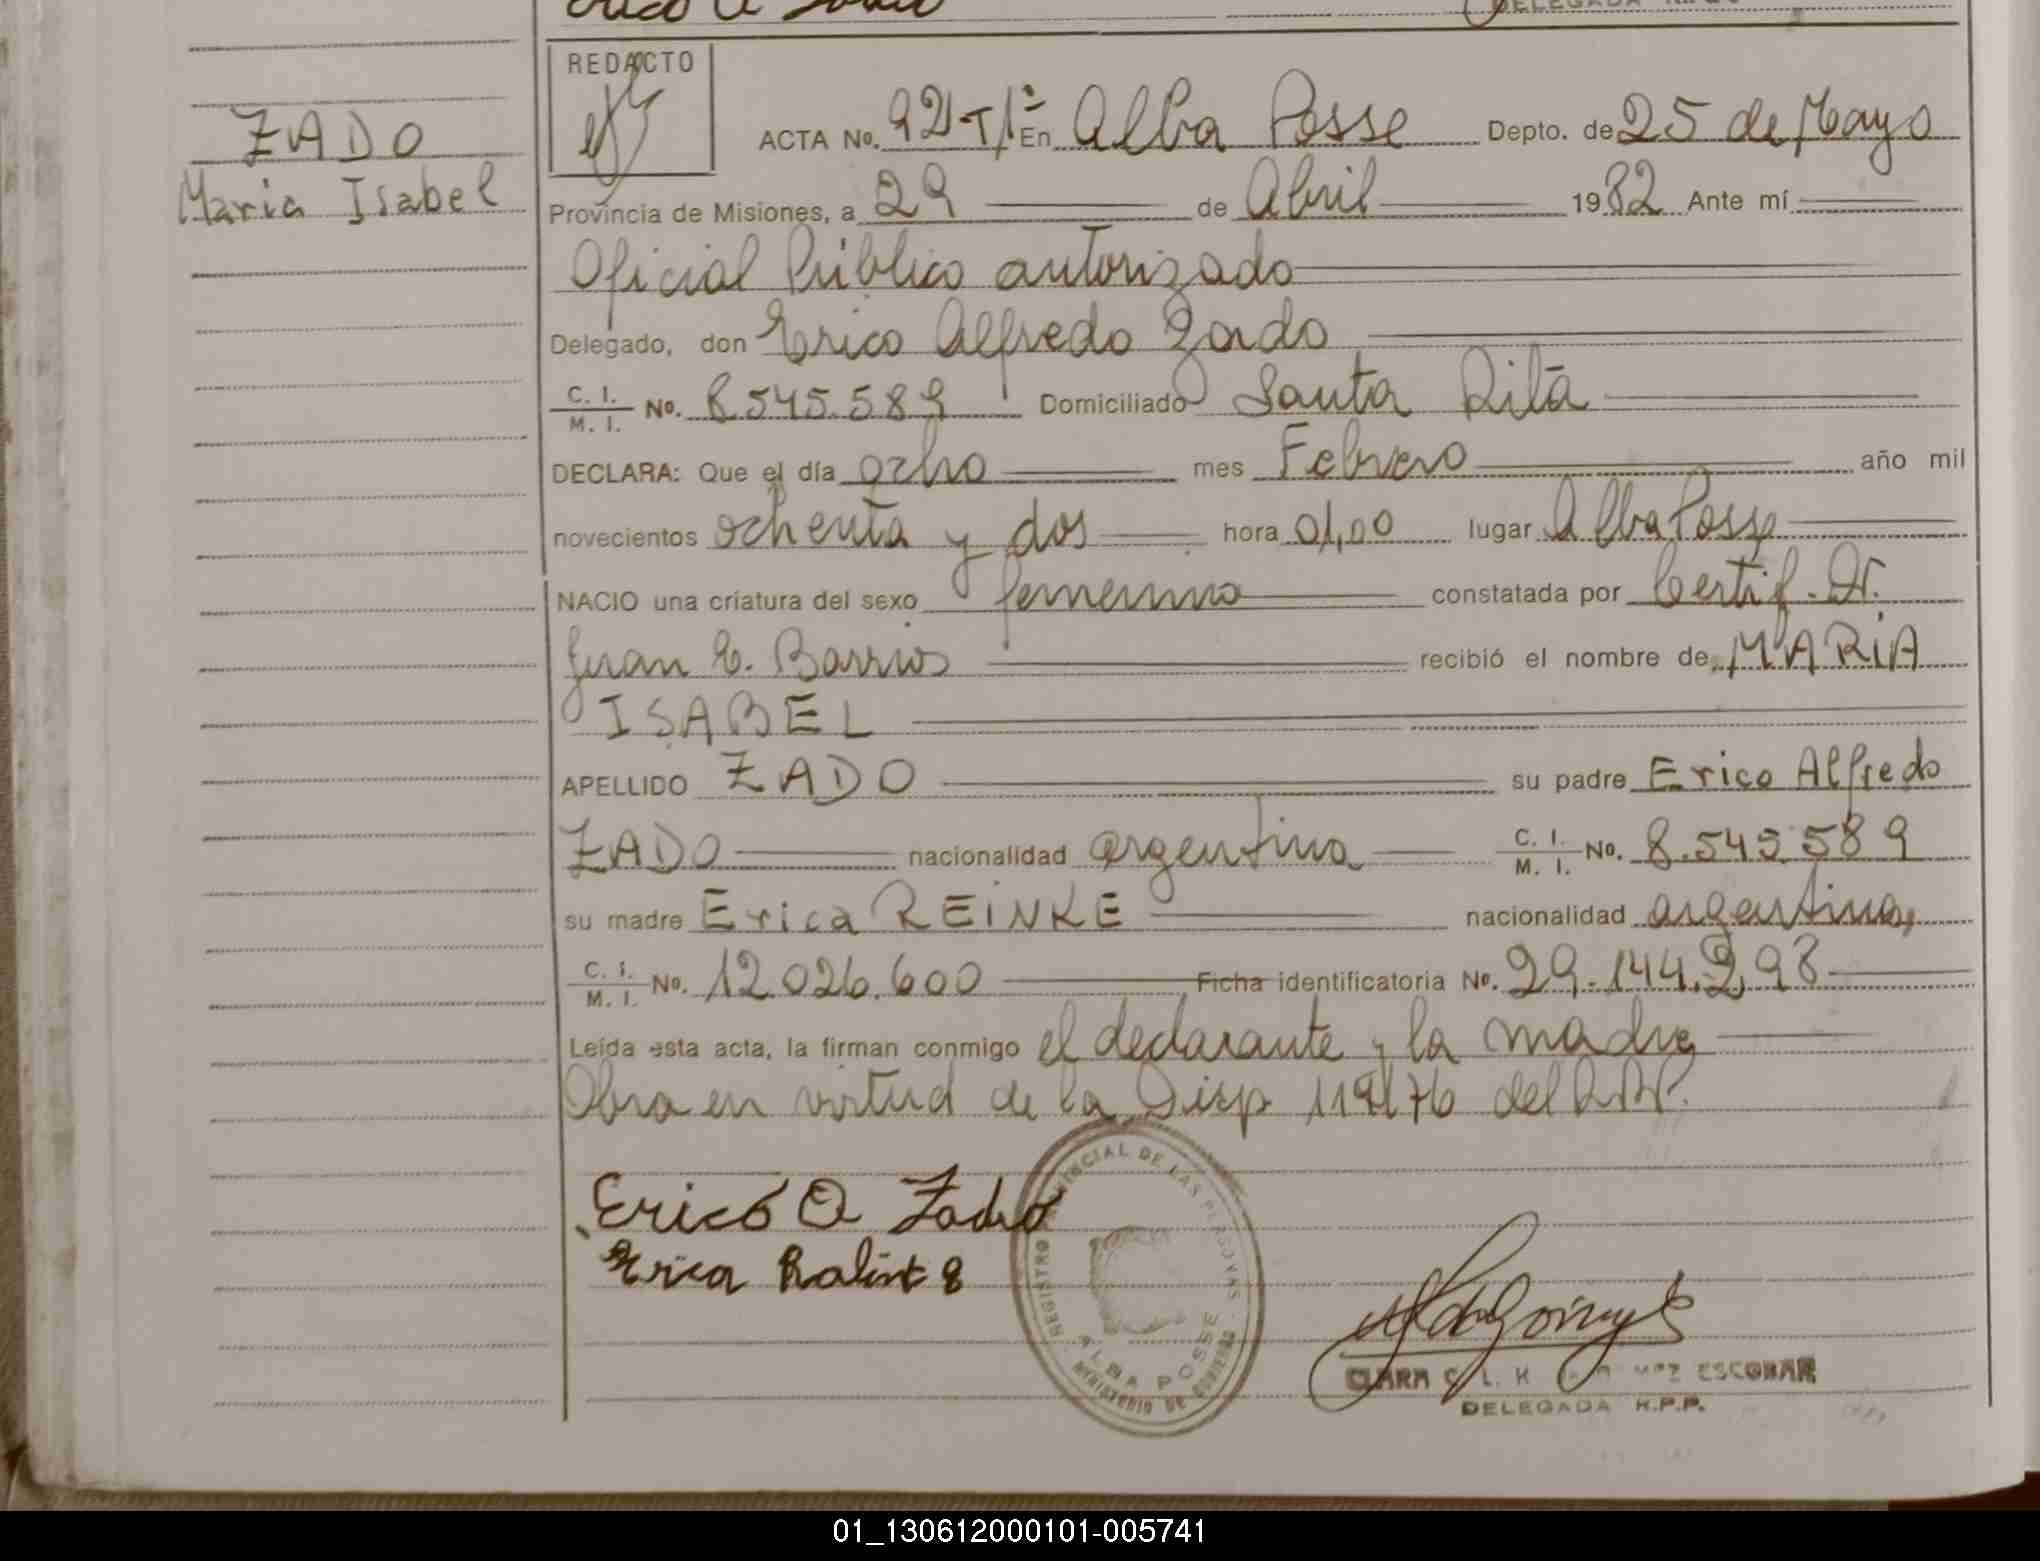 DELEGADA
ZADO
Maria Isabel
REDACTO
ACTA No. 92-T1º En Alba Posse Depto. de 25 de Mayo
Provincia de Misiones, a 29 de Abril 1982 Ante mí
Oficial Público autorizado
Delegado, don Erico Alfredo Zado
C. I. / M. I. No. 8.545.589 Domiciliado Santa Rita
DECLARA: Que el día ocho mes Febrero año mil
novecientos ochenta y dos hora 01,00 lugar Alba Posse
NACIO una criatura del sexo femenino constatada por Certif. Dr.
Juan E. Barrios recibió el nombre de MARiA
ISABEL
APELLIDO ZADO su padre Erico Alfredo
ZADO nacionalidad argentina C. I. / M. I. No. 8.545.589
su madre Erica REiNKE nacionalidad argentina,
C. I. / M. I. No. 12.026.600 Ficha identificatoria No. 29.144.298
Leída esta acta, la firman conmigo el declarante y la madre
Obra en virtud de la Disp 119/76 del R.P.P.
Erico A Zado
Erica
REGISTRO PROVINCIAL DE LAS PERSONAS
ALBA POSSE
MINISTERIO DE GOBIERNO
CLARA ESCOBAR
DELEGADA R.P.P.
01_130612000101-005741